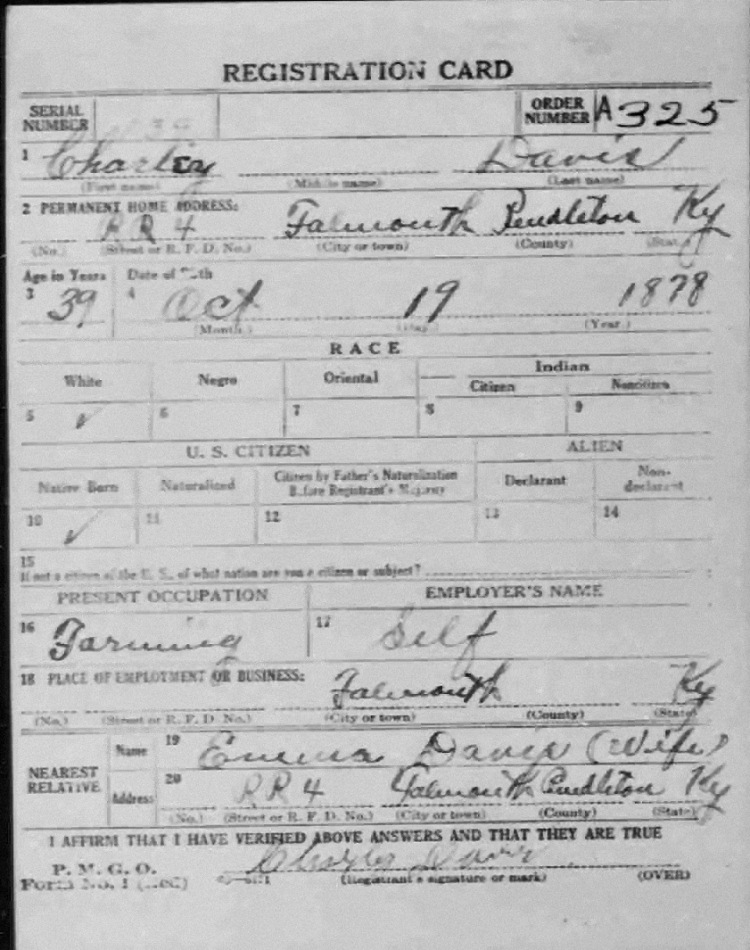 REGISTRATION CARD
SERIAL NUMBER ORDER NUMBER A325
1 Charley Davis
(First name) (Middle name) (Last name)
2 PERMANENT HOME ADDRESS:
RR 4 Falmouth Pendleton Ky
(No.) (Street or R. F. D. No.) (City or town) (County) (State)
Age in Years Date of Birth
3 39 4 Oct 19 1878
(Month.) (Day.) (Year.)
RACE
White Negro Oriental Indian
Citizen Noncitizen
5 ✓ 6 7 8 9
U. S. CITIZEN ALIEN
Native Born Naturalized Citizen by Father's Naturalization Before Registrant's Majority Declarant Non-declarant
10 ✓ 11 12 13 14
15
If not a citizen of the U. S., of what nation are you a citizen or subject?
PRESENT OCCUPATION EMPLOYER'S NAME
16 Farming 17 Self
18 PLACE OF EMPLOYMENT OR BUSINESS:
Falmouth Ky
(No.) (Street or R. F. D. No.) (City or town) (County) (State)
NEAREST RELATIVE
Name 19 Emma Davis (Wife)
Address 20 RR 4 Falmouth Pendleton Ky
(No.) (Street or R. F. D. No.) (City or town) (County) (State)
I AFFIRM THAT I HAVE VERIFIED ABOVE ANSWERS AND THAT THEY ARE TRUE
P. M. G. O. Davis
Form No. 1 (Registrant's signature or mark) (OVER)